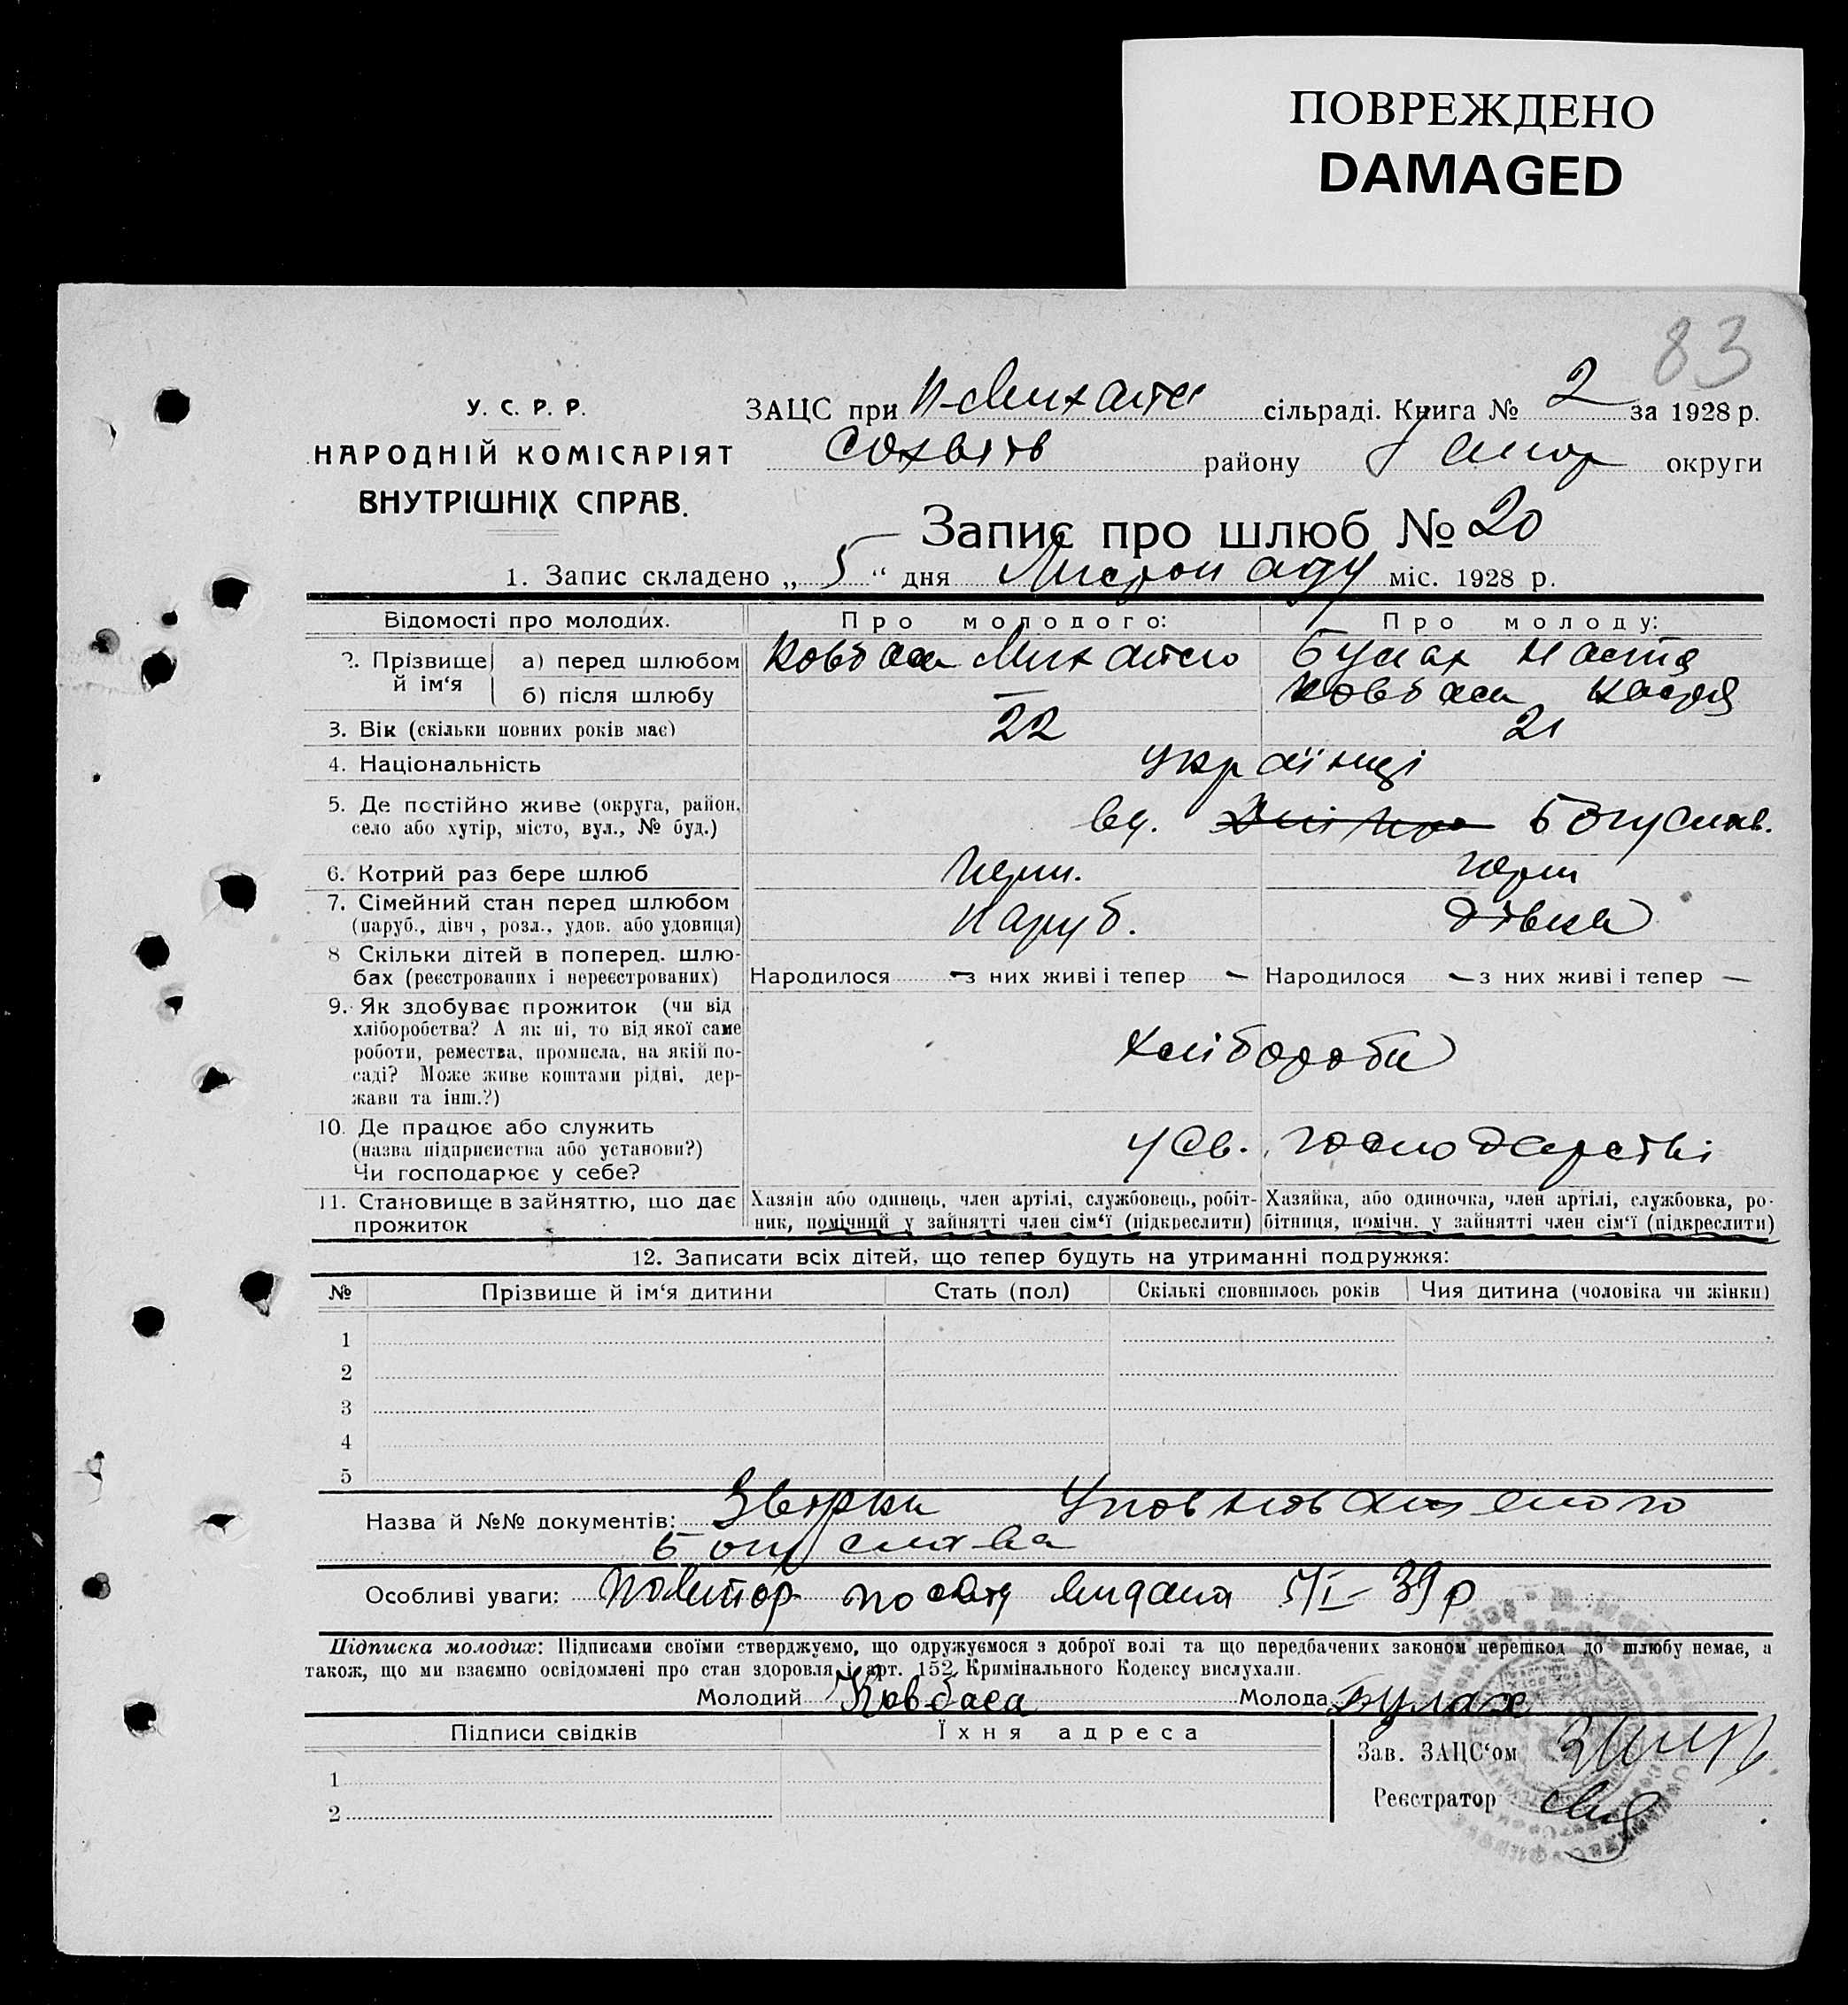 ПОВРЕЖДЕНО
DAMAGED
83
У. С. Р. Р.
НАРОДНІЙ КОМІСАРІЯТ
ВНУТРІШНІХ СПРАВ.
ЗАЦС при сільраді. Книга № 2 за 1928 р.
району округи
Запис про шлюб № 20
1. Запис складено „ 5 “ дня Листопаду міс. 1928 р.
Відомості про молодих. Про молодого: Про молоду:
2. Прізвище й ім‘я а) перед шлюбом Ковбаса Михайло Булах Настя
б) після шлюбу — Ковбаса Настя
3. Вік (скільки повних років має) 22 21
4. Національність українці
5. Де постійно живе (округа, район, село або хутір, місто, вул., № буд.)
6. Котрий раз бере шлюб перш. перш
7. Сімейний стан перед шлюбом (паруб., дівч., розл., удов. або удовиця) паруб. дівка
8 Скільки дітей в поперед. шлюбах (реєстрованих і нереєстрованих) Народилося — з них живі і тепер — Народилося — з них живі і тепер —
9. Як здобуває прожиток (чи від
хліборобства? А як ні, то від якої саме
роботи, ремества, промисла, на якій по-
саді? Може живе коштами рідні, дер-
жави та інш.?) хлібороби
10. Де працює або служить
(назва підприємства або установи?) у св. господарстві
Чи господарює у себе?
11. Становище в зайняттю, що дає прожиток
Хазяін або одинець, член артілі, службовець, робіт-
ник, помічний у зайнятті член сім‘ї (підкреслити)
Хазяйка, або одиночка, член артілі, службовка, ро-
бітниця, помічн. у зайнятті член сім‘ї (підкреслити)
12. Записати всіх дітей, що тепер будуть на утриманні подружжя:
№ Прізвище й ім‘я дитини Стать (пол) Скількі сповнилось років Чия дитина (чоловіка чи жінки)
1
2
3
4
5
Назва й №№ документів:
Особливі уваги: 5/I – 39 р
Підписка молодих: Підписами своїми стверджуємо, що одружуємося з доброї волі та що передбачених законом перешкод до шлюбу немає, а
також, що ми взаємно освідомлені про стан здоровля і арт. 152 Кримінального Кодексу вислухали.
Молодий Ковбаса Молода Булах
Підписи свідків Їхня адреса
Зав. ЗАЦС‘ом
1
Реєстратор
2